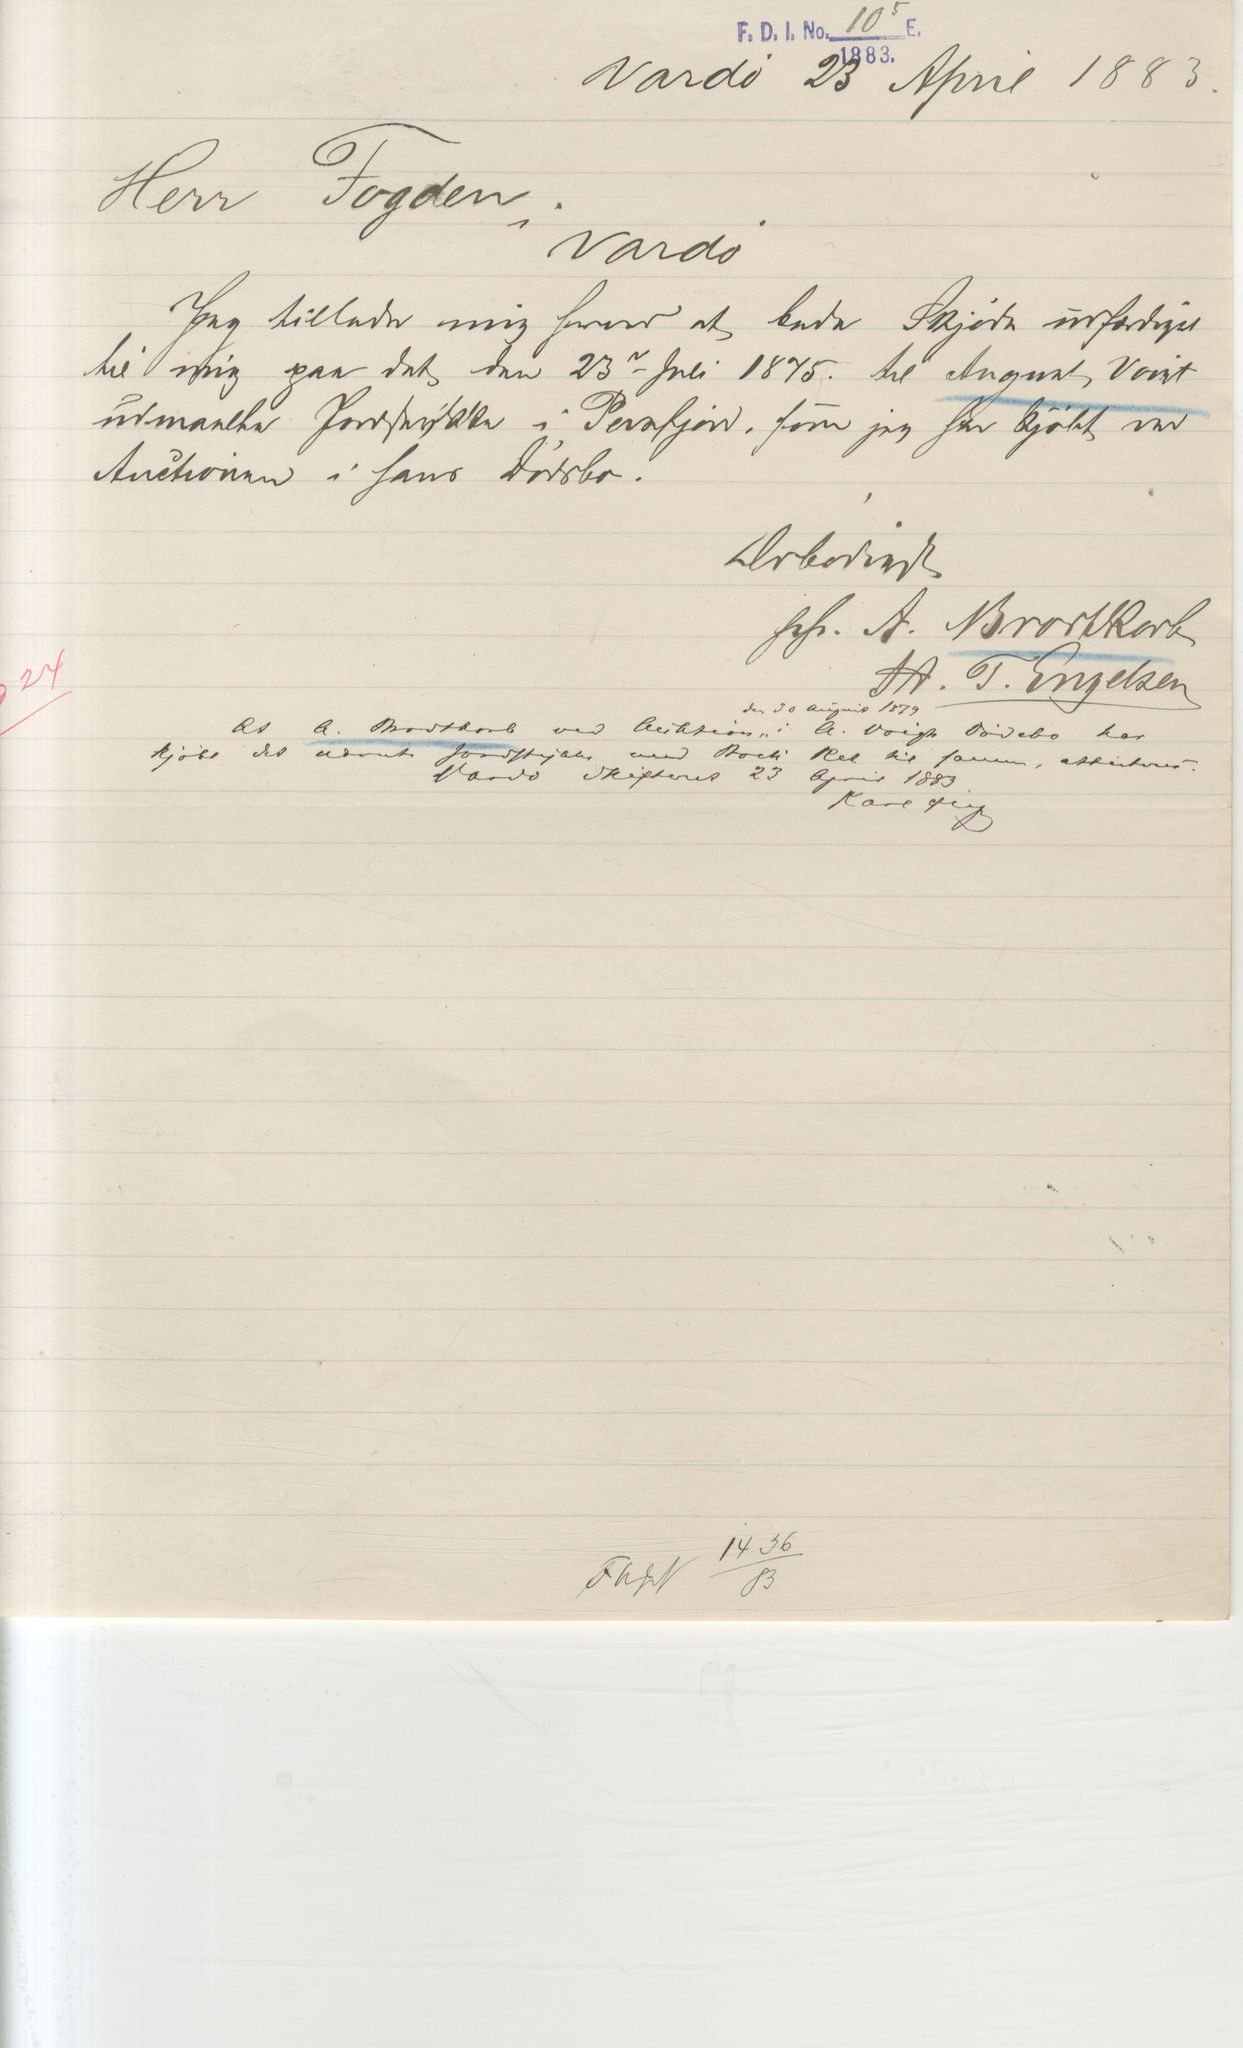 F. D. I. No. 10⁵ E.
1883.
Vardö 23 April 1883.
Herr Fogden i
Vardö
Jeg tillader mig herved at bede Skjöde udfærdiget
til mig paa det den 23ᵈ Juli 1875. til August Voigt
udmaalte Jordstykke i Persfjord, som jeg har kjöbt ved
Auctionen i hans Dödsbo.
Ærbødigst
A. Brodtkorb
T. Engelsen
den 30 August 1879
At A. Brodtkorb ved Auktion i A. Voigts Dödsbo har
kjöbt det nævnte Jordstykke med Ret til samme, attesteres.
Vardö Skifteret 23 April 1883
Karl
24
1436
83